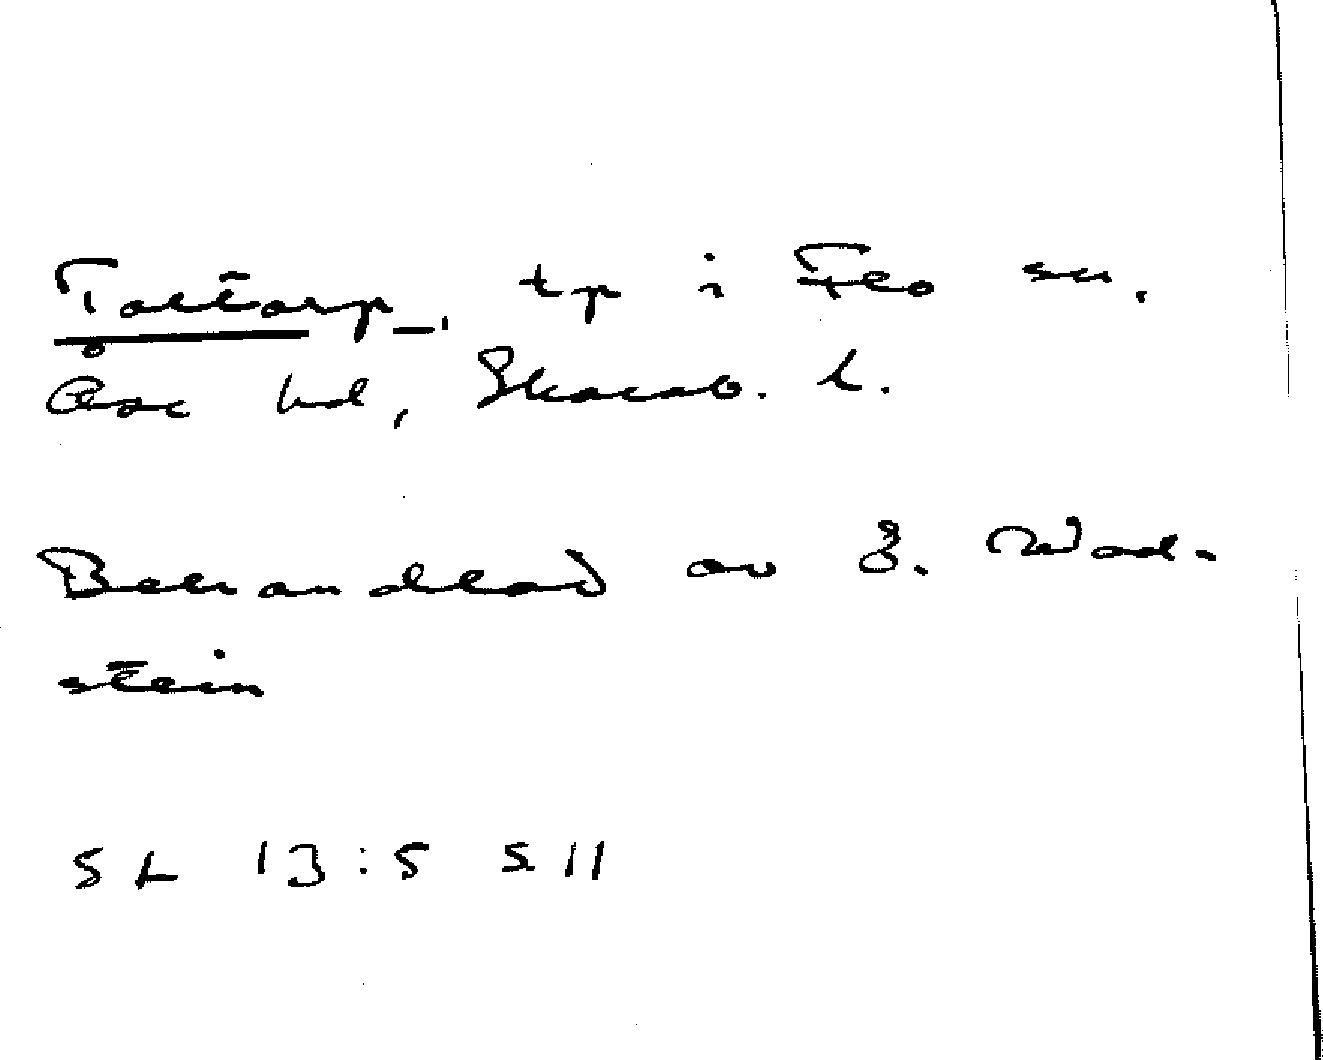 Tastarp, tp i Flo sn,
Åse hd, Skarab. l.
Behandlad av E. Wad-
stein
SL 13:5 s 11